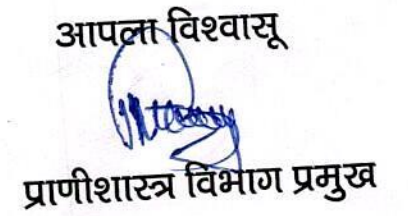 आपला विश्वासू
प्राणीशास्त्र विभाग प्रमुख